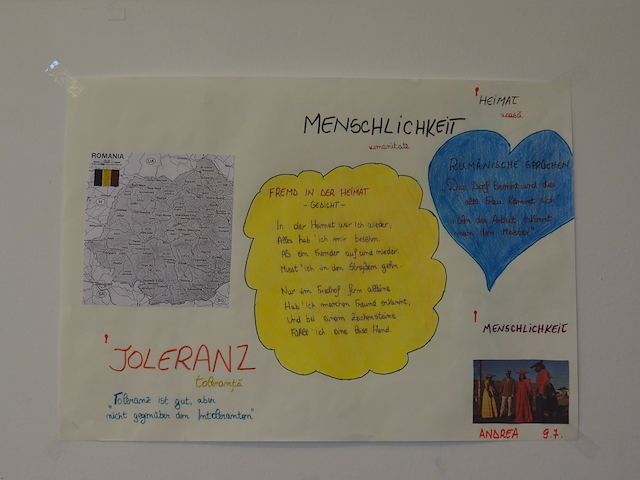 HEIMAT
acasă
MENSCHLICHKEIT
umanitate
ROMANIA
RUMÄNISCHE SPRÜCHEN
Das Dorf brennt und die
alte Frau kämmt sich
An der Arbeit erkennt
man den Meister"
FREMD IN DER HEIMAT
- GEDICHT -
In der Heimat war ich wieder,
Alles hab' ich mir besehn
Als ein Fremder auf und nieder
Musst' ich in den Straßen gehn.
Nur im Friedhof fern alleine
Hab' ich manchen Freund erkannt,
Und bei einem Leichensteine
Fühlt' ich eine leise Hand.
MENSCHLICHKEIT
TOLERANZ
toleranță
"Toleranz ist gut, aber
nicht gegenüber den Intoleranten"
ANDREA 9.7.